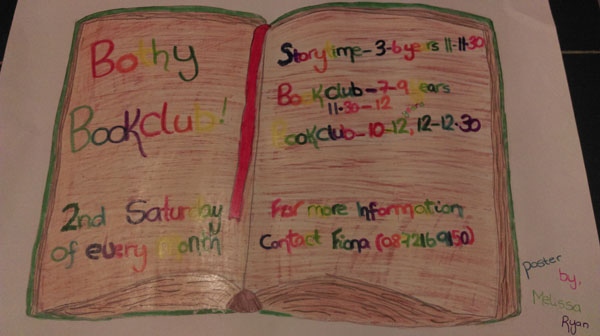 Bothy
Bookclub!
2nd Saturday
of every month
Storytime-3-6years 11-11.30
Bookclub-7-9 years
11.30-12
Bookclub-10-12years, 12-12.30
For more Information
Contact Fiona (0872169150)
poster
by,
Melissa
Ryan